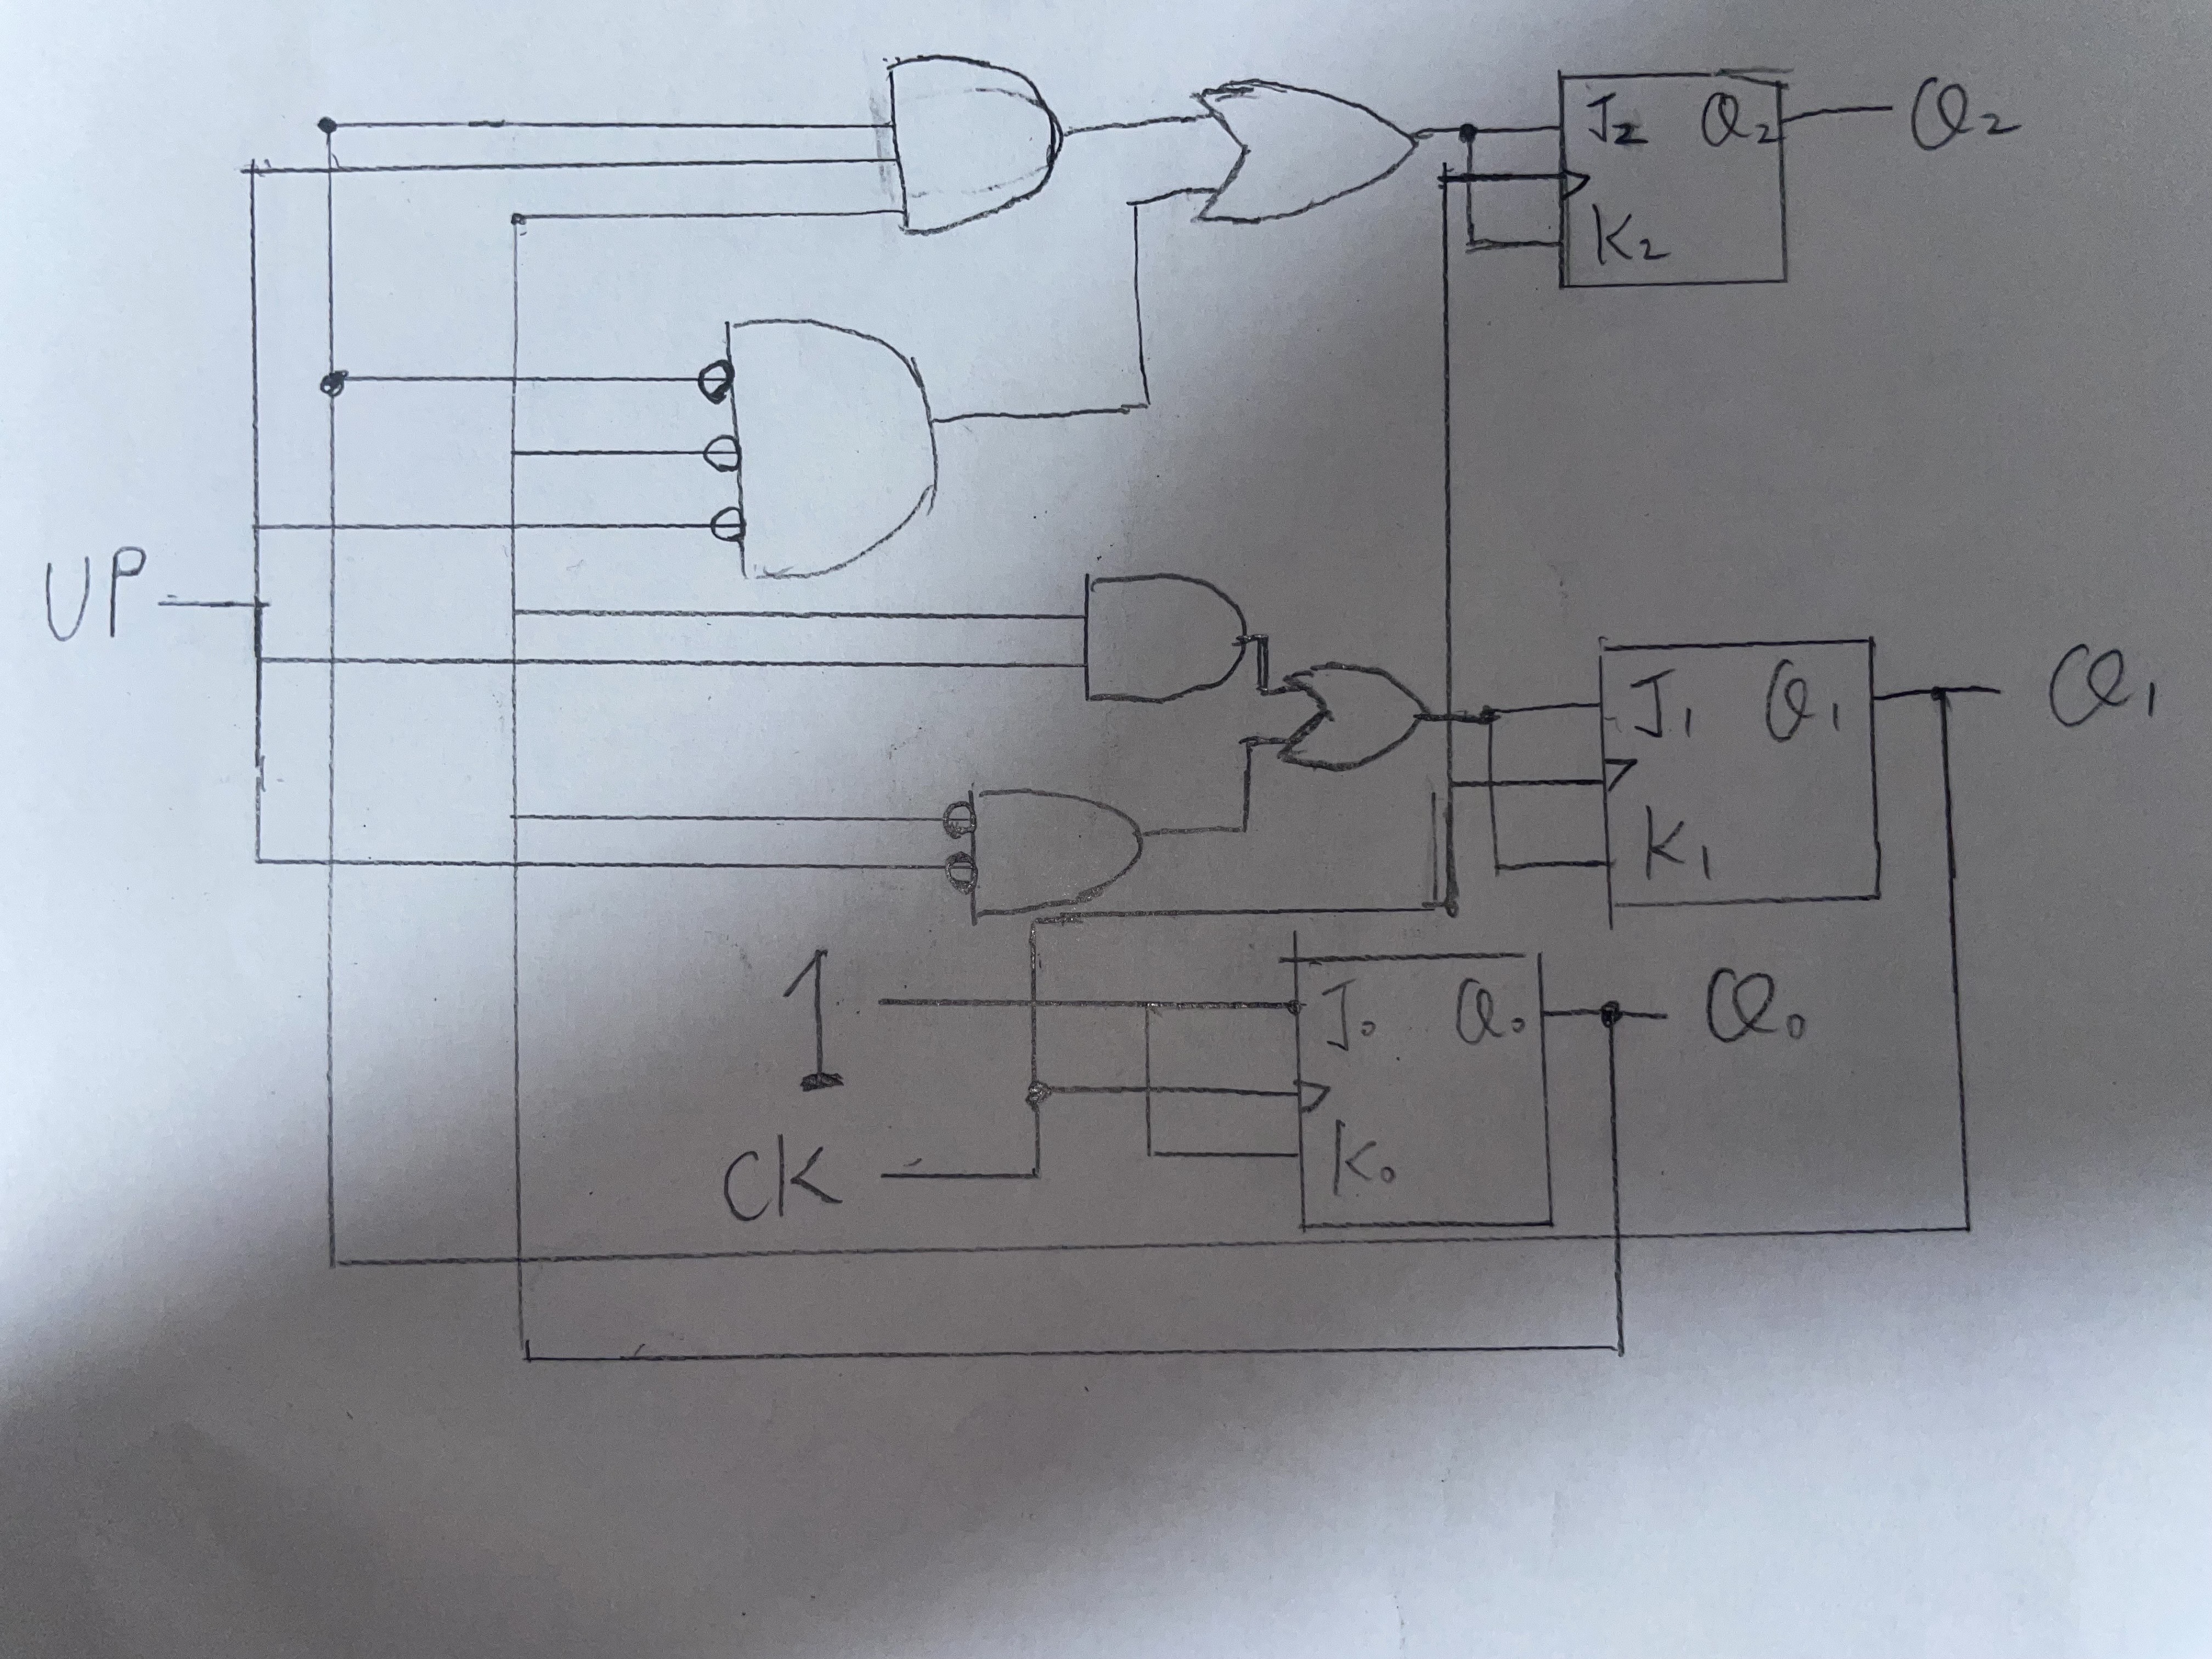 J2 Q2 Q2
K2
UP
J1 Q1 Q1
K1
1 J0 Q0 Q0
CK K0